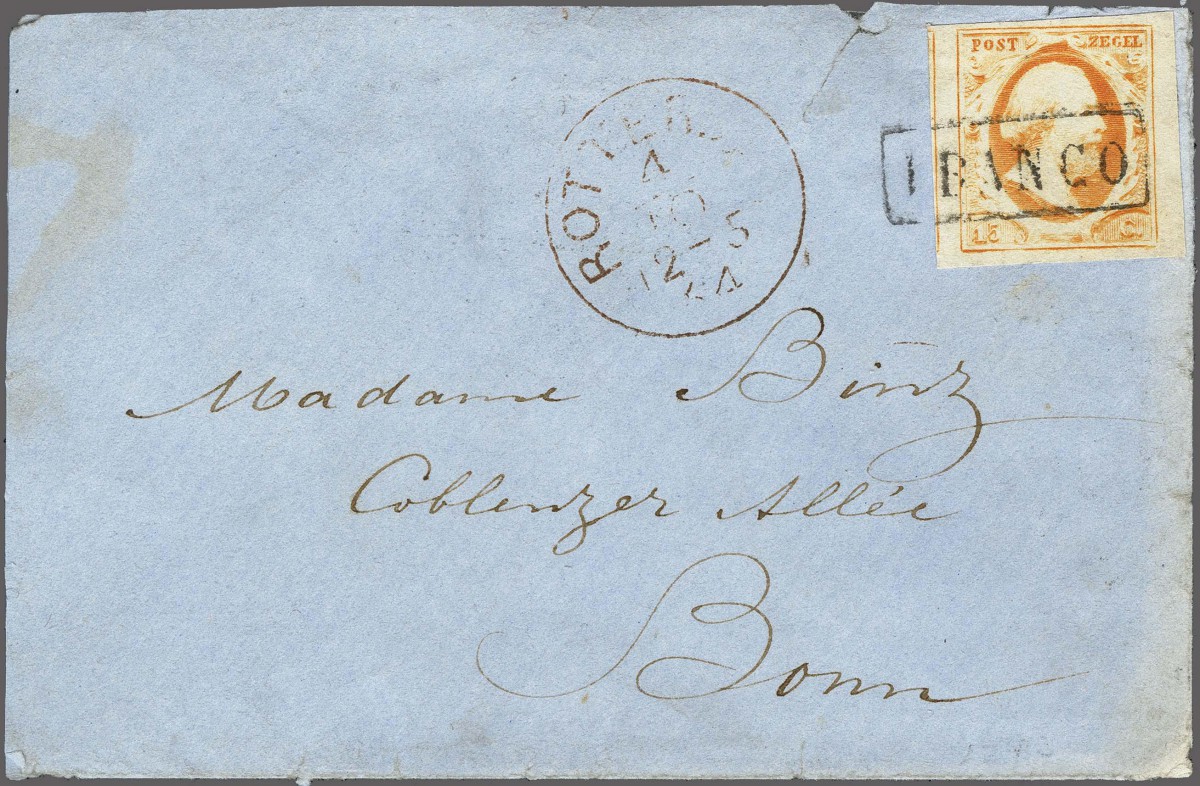 POST ZEGEL
FRANCO
15 C.
ROTTERD
12-5
Madame Binz
Coblenzer Allée
Bonn